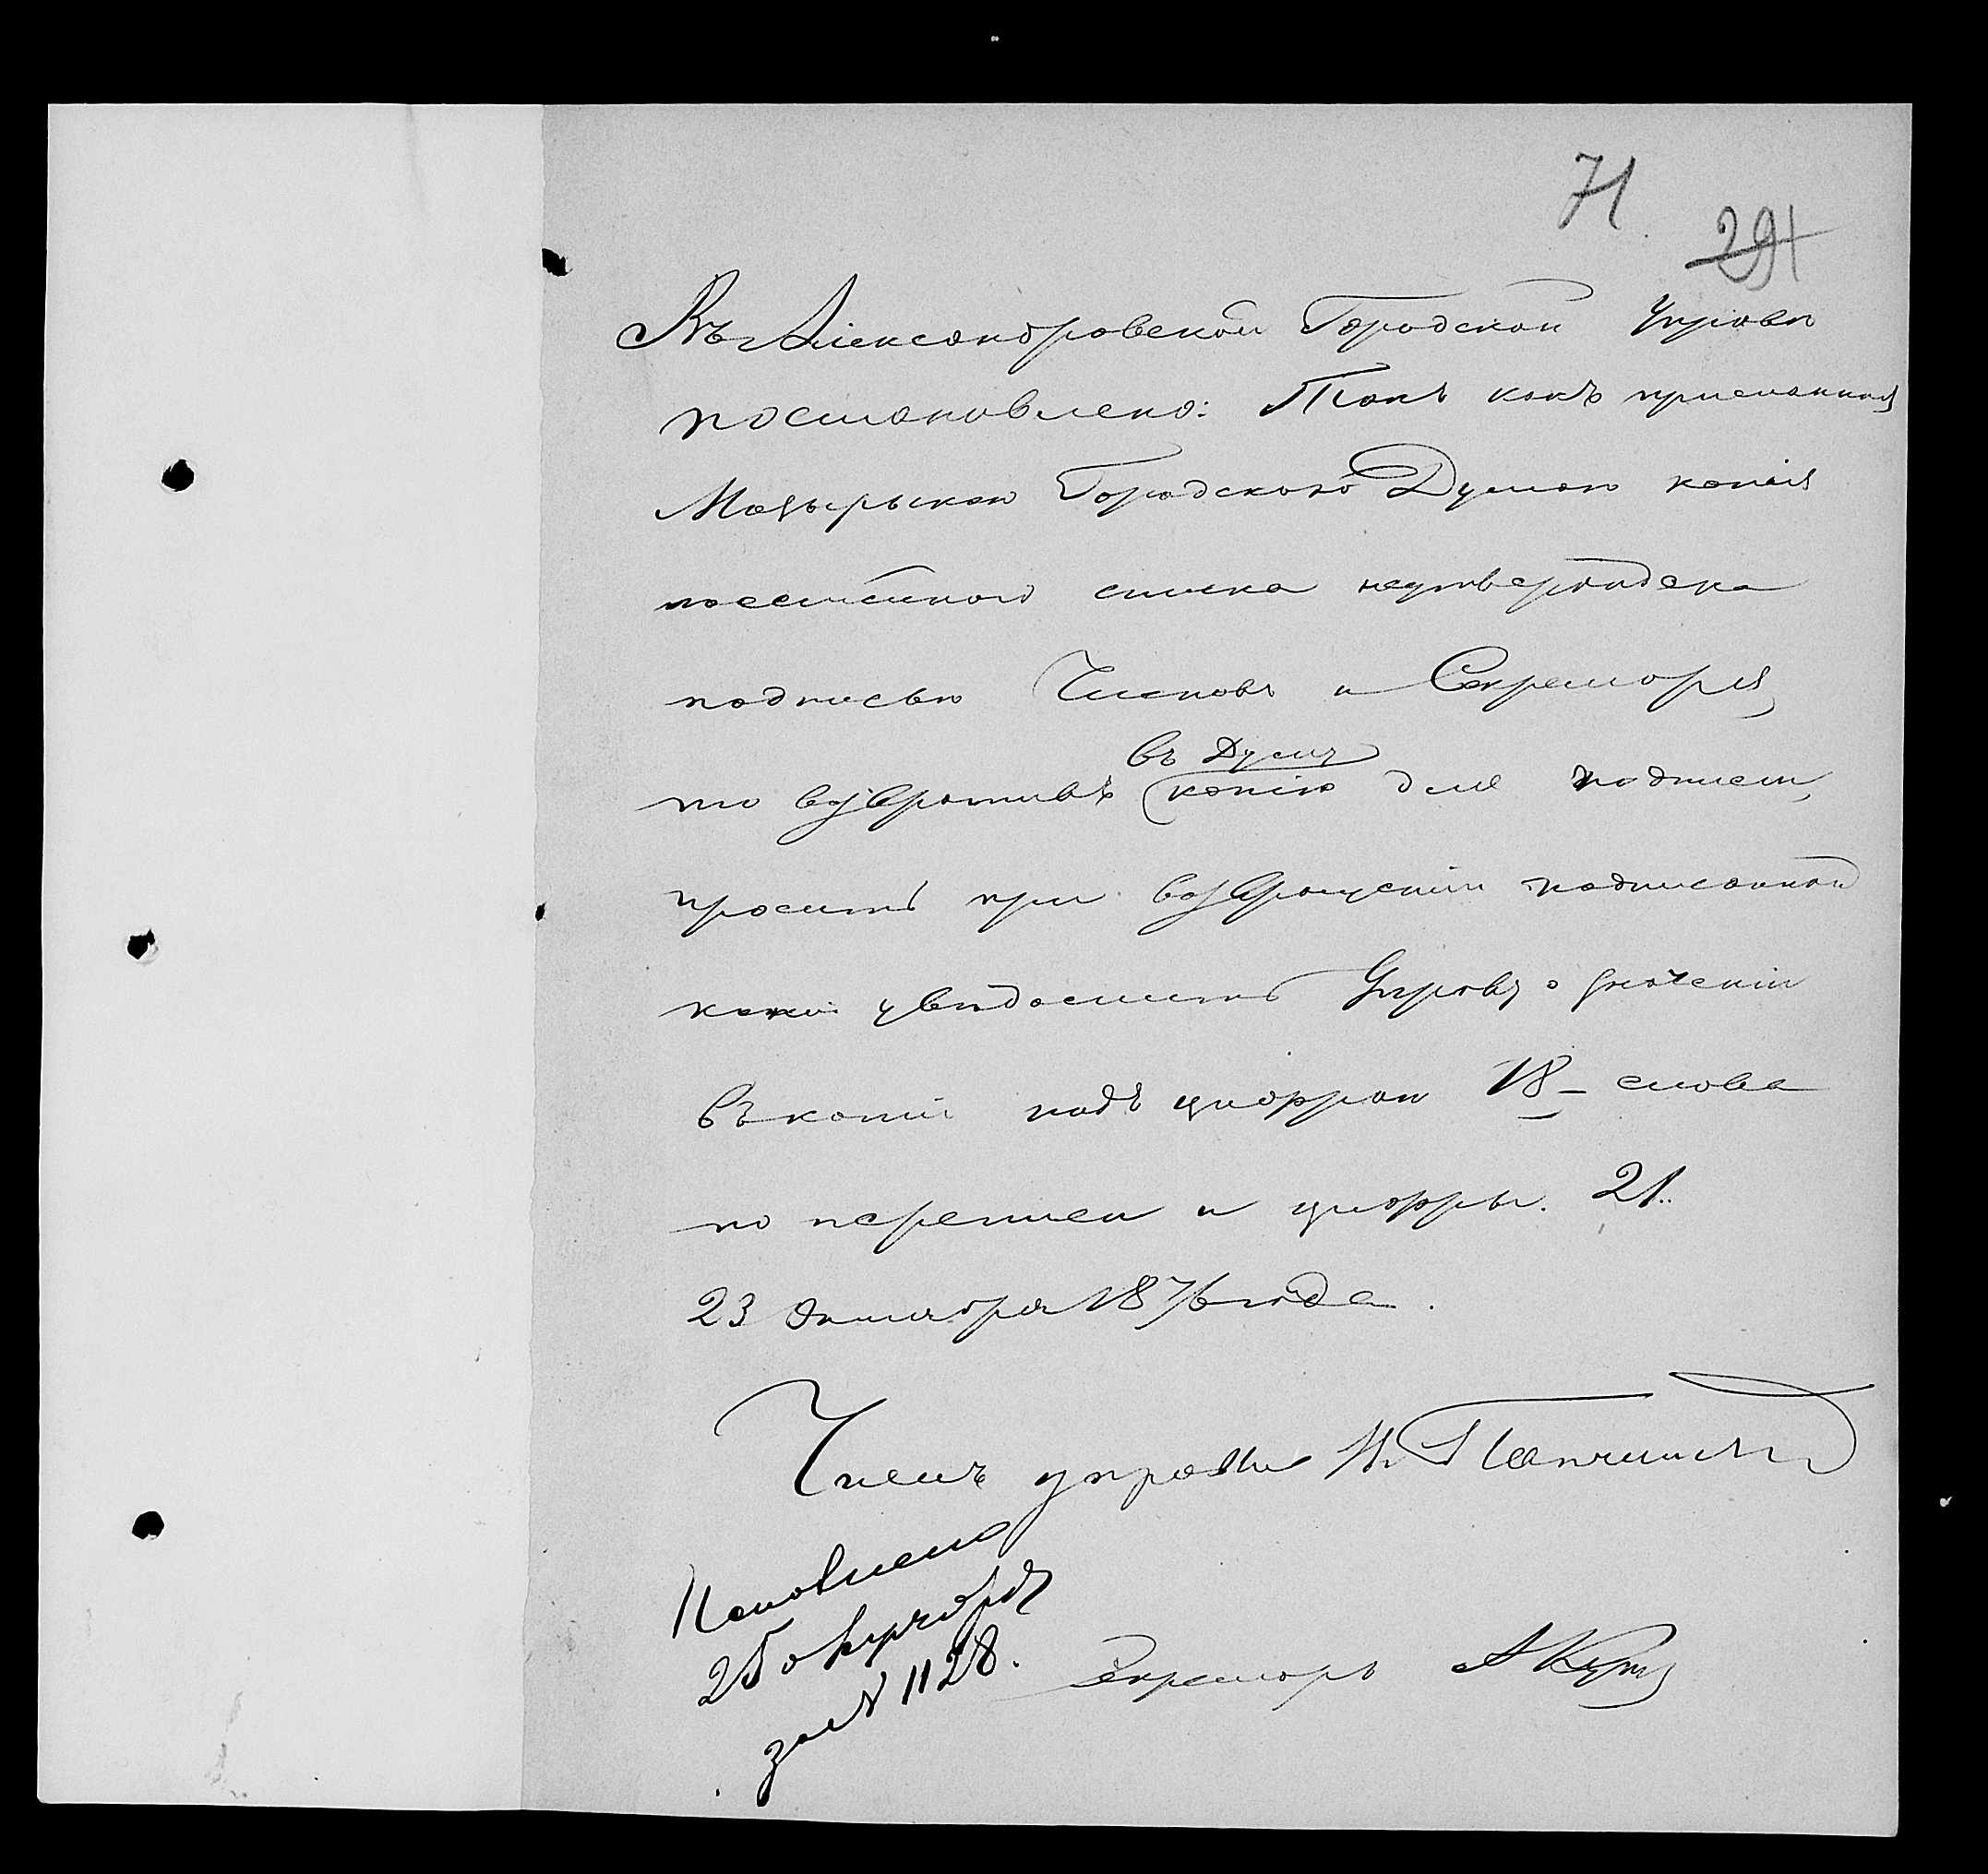 71
291
Въ Александровской Городской Управѣ
постановлено: Такъ какъ присланная
Мозырьскою Городскою Думою копія
посемейнаго списка неутверждена
подписью Членовъ и Секретаря,
въ Думу
то возвративъ копію для подписи,
просить при возвращеніи подписанной
копіи увѣдомить Управу о значеніи
въ копіи подъ цифрою 18 слова
по переписи и цифры. 21.
23 Октября 1876 года.
Членъ управы
Исполнено
25 октября
за № 1128.
Секретарь